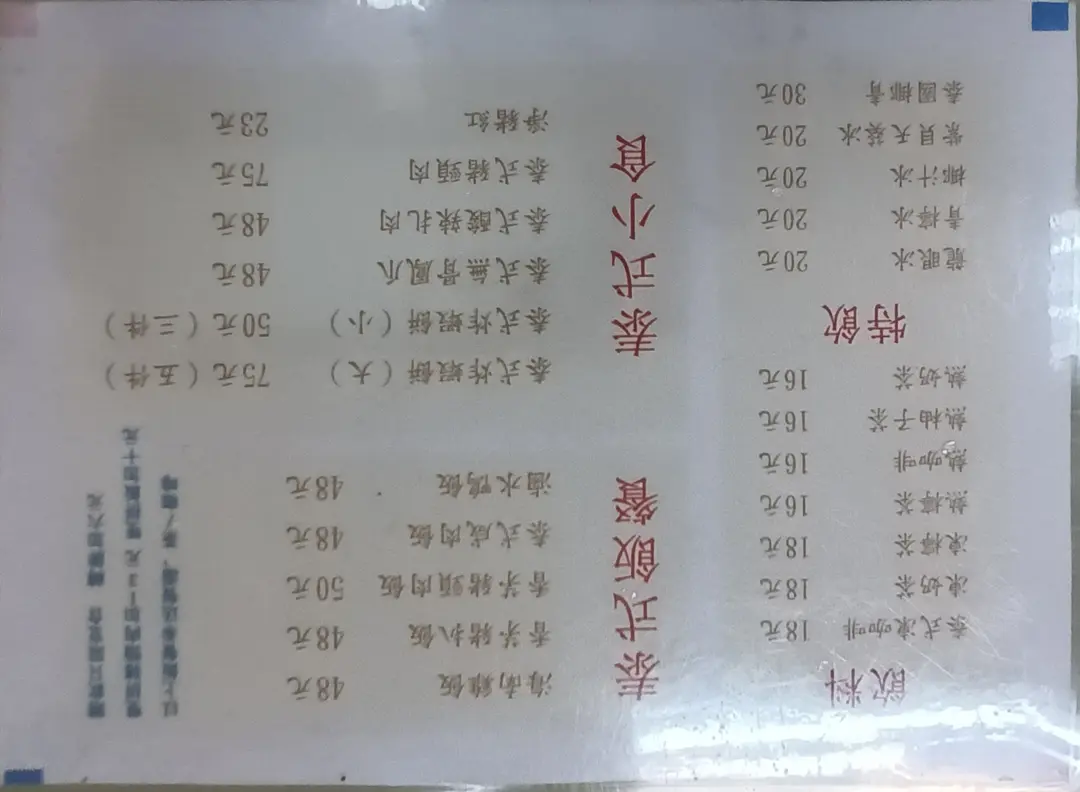 飲料
泰式凍咖啡 18元
凍奶茶 18元
凍檸茶 18元
熱檸茶 16元
熱咖啡 16元
熱柚子茶 16元
熱奶茶 16元
特飲
龍眼冰 20元
青檸冰 20元
椰汁冰 20元
紫貝天葵冰 20元
泰國椰青 30元
泰比飯餐
海南雞飯 48元
香茅豬扒飯 48元
香茅豬頸肉飯 50元
泰式咸肉飯 48元
滷水鴨飯 48元
泰比小食
泰式炸蝦餅（大） 75元（五件）
泰式炸蝦餅（小） 50元（三件）
泰式無骨鳳爪 48元
泰式酸辣扎肉 48元
泰式豬頸肉 75元
淨豬紅 23元